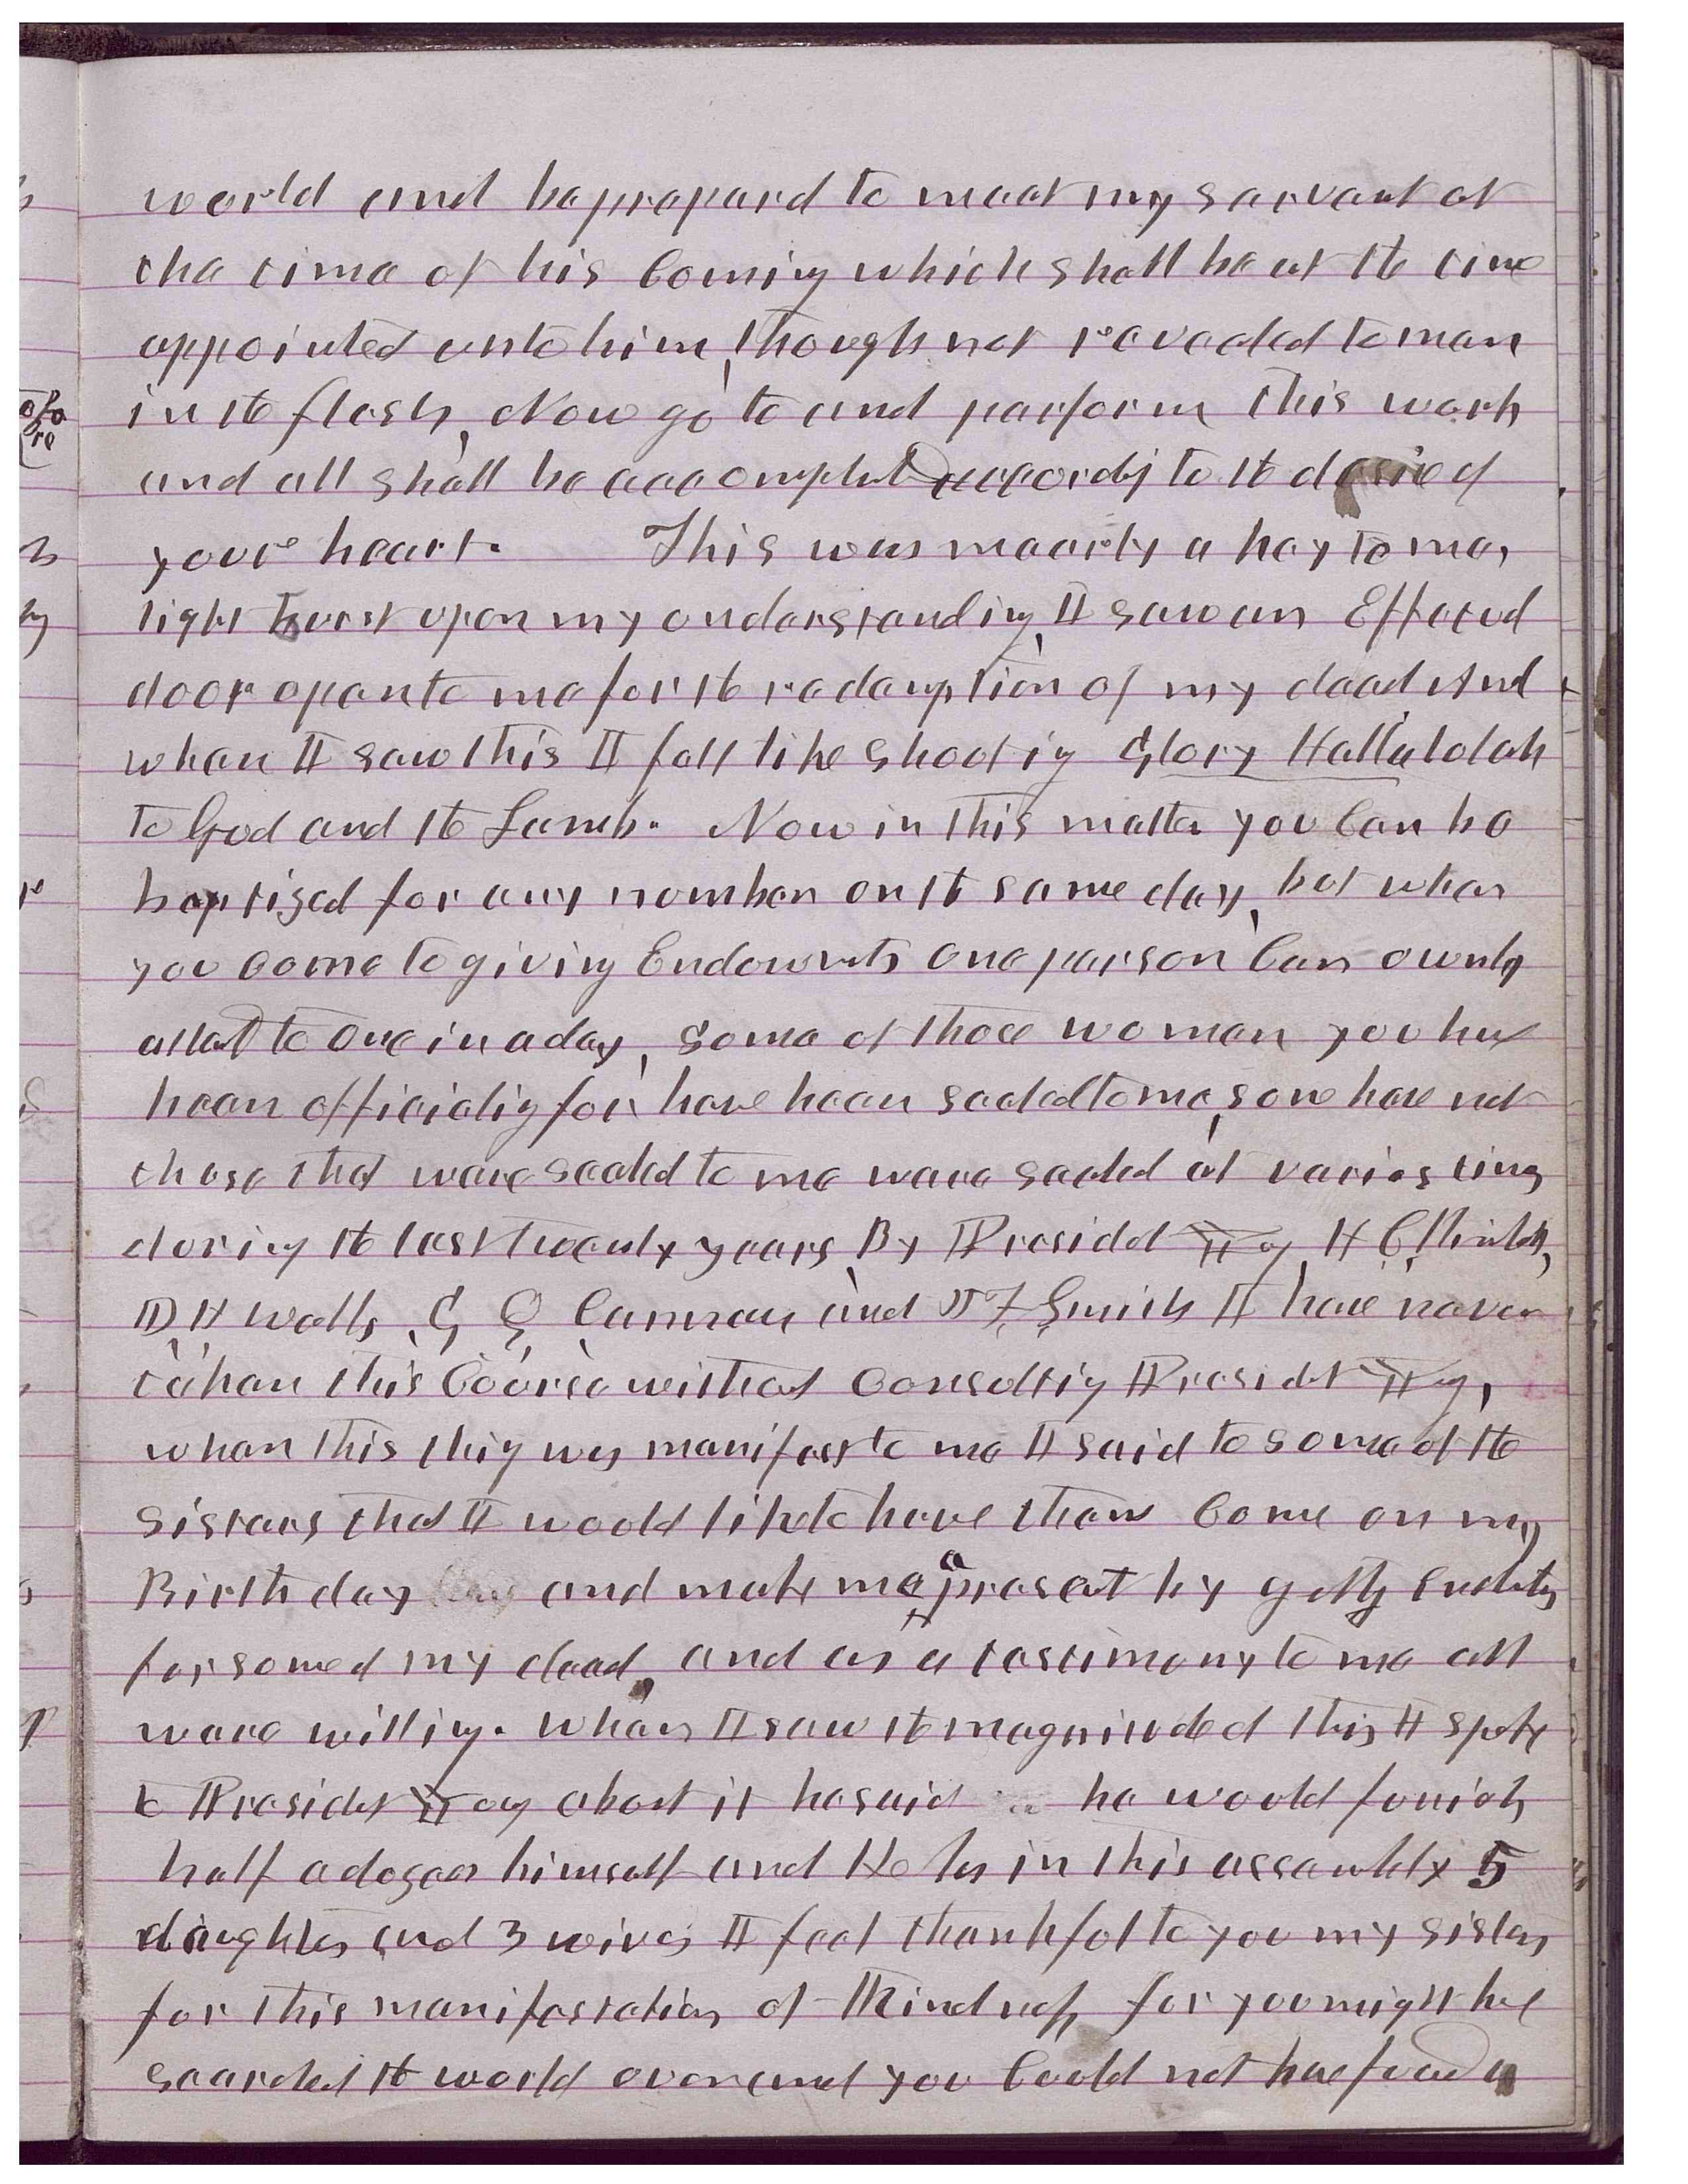 world and be prepared to meet my servant at
the time of his Coming which shall be at the time
appointed unto him, though not revealed to man
in the flesh, Now go to and perform this work
and all shall be accomplished according to the desire of
your heart. This was meerly a key to me,
light burst upon my understanding, I saw an Effectual
door open to me for the redemption of my dead And
when I saw this I felt like shouting Glory Hallalulah
to God and the Lamb. Now in this matter you Can be
baptized for any number on the same day, but when
you come to giving Endowments one person Can ownly
attend to one in a day, some of those women you have
been officiating for, have been sealed to me, some have not
those that were sealed to me were sealed at various times
during the last twenty years By President Young, H C Kimball,
D, H Wells, G, Q, Cannon and J F Smith I have never
taken this Course without consulting President Young,
when this thing was manifest to me I said to some of the
sisters that I would like to have them Come on my
Birthday and make me a present by getting Endowments
for some of my dead, and as a testimony to me all
were willing. When I saw the magnitude of this I spoke
to President Young about it he said he would furnish
half a dozen himself and He has in this assembly 5
daughters and 3 wives I feel thankful to you my sisters
for this manifestation of Kindness for you might have
searched the world over and you Could not have found a